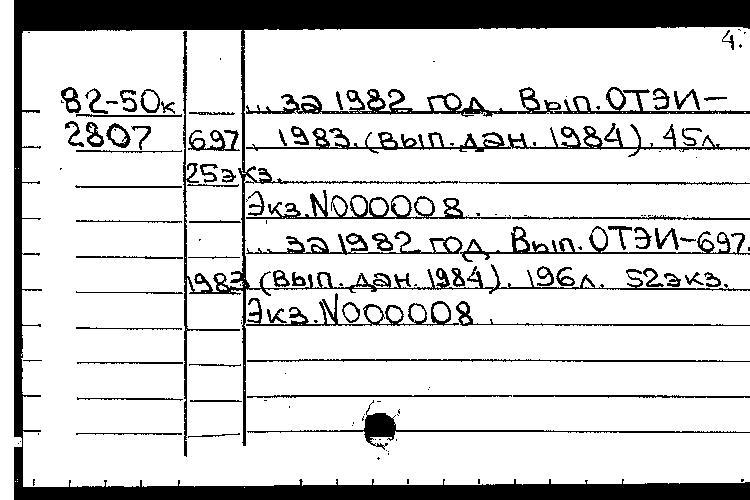 4.
82-50к ... за 1982 год. Вып. ОТЭИ-
2807 697. 1983. (Вып. дан. 1984). 45л.
25экз.
Экз. N000008.
... за 1982 год. Вып. ОТЭИ-697.
1983 (Вып. дан. 1984). 196л. 52экз.
Экз. N000008.